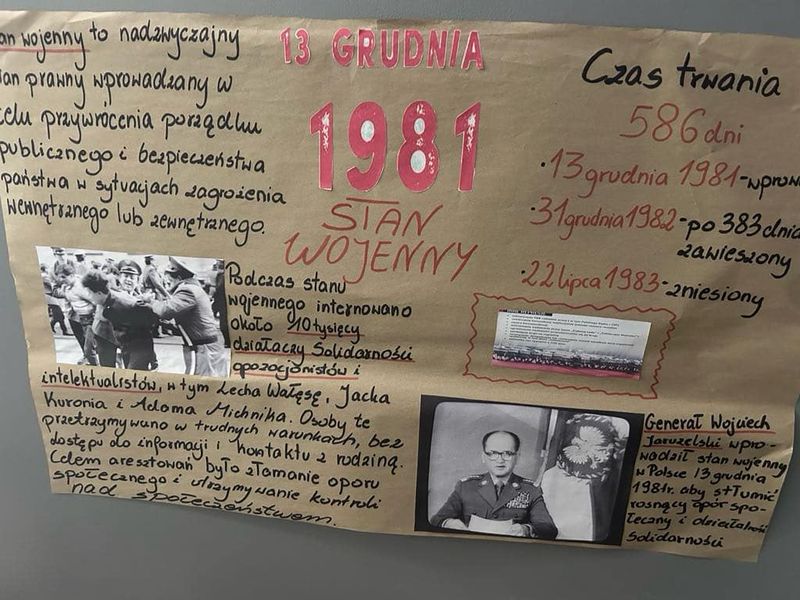 13 GRUDNIA
1981
STAN
WOJENNY
an wojenny to nadzwyczajny
an prawny wprowadzany w
celu przywrócenia porządku
publicznego i bezpieczeństwa
państwa w sytuacjach zagrożenia
wewnętrznego lub zewnętrznego.
Czas trwania
586 dni
·13 grudnia 1981-wprow
·31 grudnia 1982-po 383 dnia
zawieszony
·22 lipca 1983-zniesiony
Podczas stanu
wojennego internowano
około 10 tysięcy
działaczy Solidarności
opozycjonistów i
intelektualistów, w tym Lecha Wałęsę, Jacka
Kuronia i Adama Michnika. Osoby te
przetrzymywano w trudnych warunkach, bez
dostępu do informacji i kontaktu z rodziną.
Celem aresztowań było złamanie oporu
społecznego i utrzymywanie kontroli
nad społeczeństwem.
Generał Wojciech
Jaruzelski wpro-
wadził stan wojenny
w Polsce 13 grudnia
1981r. aby stłumić
rosnący opór spo-
łeczny i działalność
Solidarności